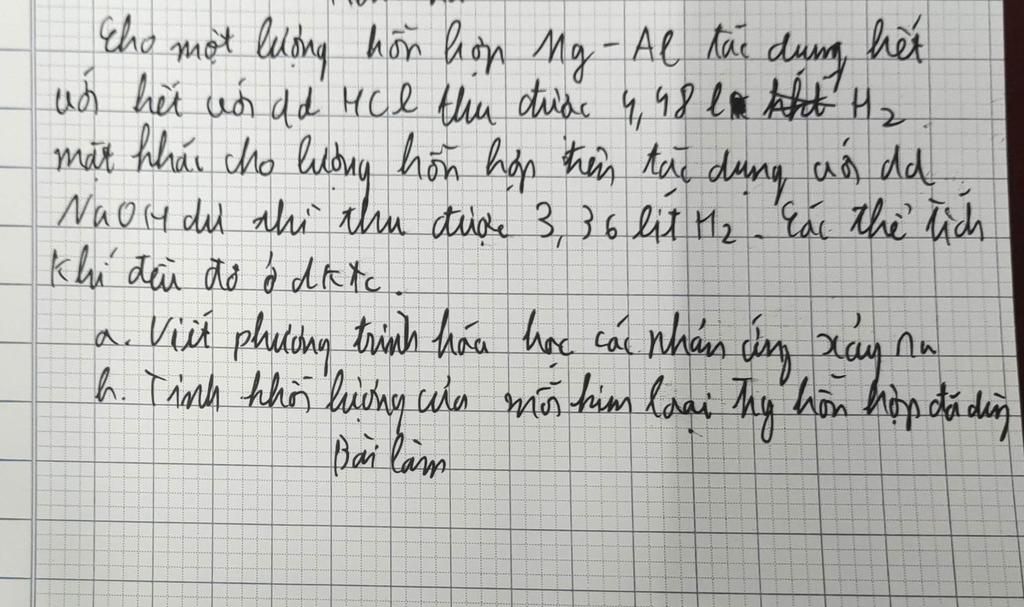 Cho một lượng hỗn hợp Mg - Al tác dụng hết
với hết với dd HCl thu được 4,48 l H2.
mặt khác cho lượng hỗn hợp trên tác dụng với dd
NaOH dư thì thu được 3,36 lít H2. Các thể tích
khí đều đo ở đktc.
a. Viết phương trình hóa học các phản ứng xảy ra
b. Tính khối lượng của mỗi kim loại trg hỗn hợp đã dùng
Bài làm